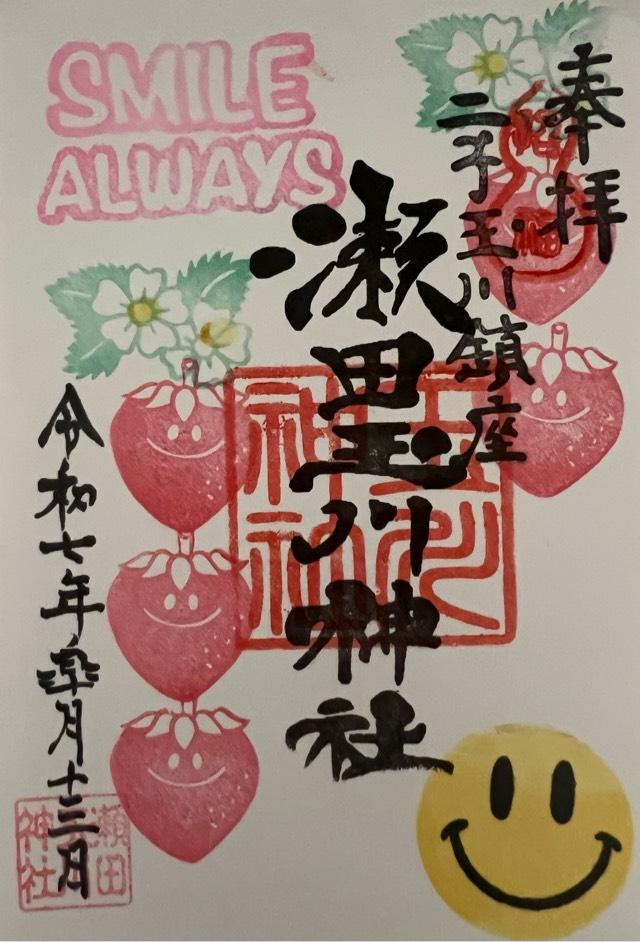 SMILE
ALWAYS
奉拝
二子玉川鎮座
瀬田玉川神社
令和七年皐月十三日
玉川
神社
瀬田
神社